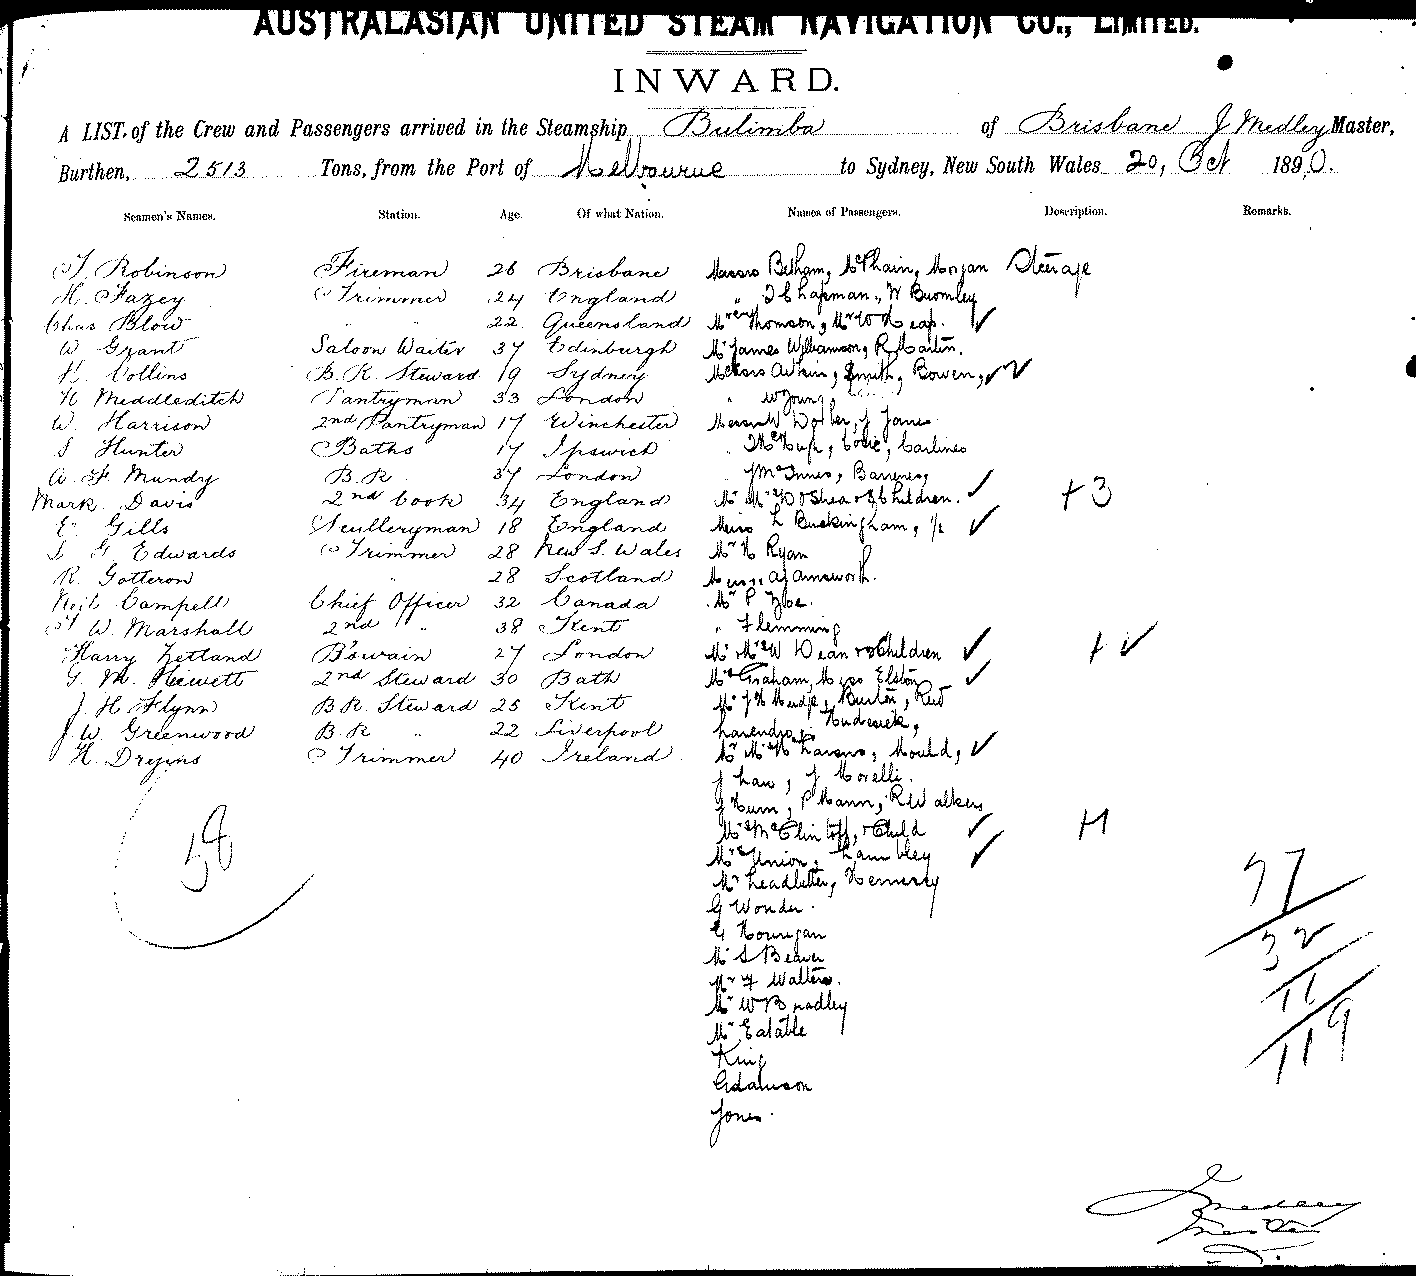 AUSTRALASIAN UNITED STEAM NAVIGATION CO., LIMITED.
INWARD.
A LIST, of the Crew and Passengers arrived in the Steamship Bulimba of Brisbane J Medley Master,
Burthen, 2513 Tons, from the Port of Melbourne to Sydney, New South Wales 20, Oct 1890.
Seamen's Names. Station. Age. Of what Nation. Names of Passengers. Description. Remarks.
T. Robinson Fireman 26 Brisbane Messrs Betham, McPhain, Morgan Steerage
H. Fazey Trimmer 24 England " J Chapman, W Bromley
Chas Blow " " 22 Queensland Mrs Thomson, Mr W Heap.
W Grant Saloon Waiter 37 Edinburgh Mr James Williamson, R Martin.
H. Collins B. R. Steward 19 Sydney Messrs Aitkin, Smith, Bowen,
H Middleditch Pantryman 33 London " W Young,
W. Harrison 2nd Pantryman 17 Winchester Messrs W J James
S Hunter Baths 17 Ipswich
A. F. Mundy B.R. 37 London J McInnes,
Mark Davis 2nd Cook 34 England Mr Mrs O'Shea & 3 Children. + 3
E Gills Sculleryman 18 England Miss L Buckingham, 1/2
S G. Edwards Trimmer 28 New S. Wales Mr H Ryan
R. Gotteron " 28 Scotland
Neil Campell Chief Officer 32 Canada Mr P Zloe.
W. Marshall 2nd " 38 Kent " Flemming
Harry Zetland B'swain 27 London Mr Mrs W Dean & Children
G. M. Hewett 2nd Steward 30 Bath Mrs Graham, Miss Elston
J. H Flynn B.R. Steward 25 Kent Mr J H Mudge, Burton, Reid
J. W. Greenwood B.R. " 22 Liverpool
H. Dryins Trimmer 40 Ireland Mr Mrs H Parsons, Mould,
J Law, J Morelli.
J Hurn, P Mann, R Walkers
58
Mrs McClintoff, & Child +1
Mrs Union, Lambley
Mr Leadbetter, Hennessy
77
G Wonder.
G Hourigan
32
Mr S Beaver
Mr F Walters.
11
Mr W Bradley
Mr Eatable
119
King
Adamson
Jones.
J Medley
Master